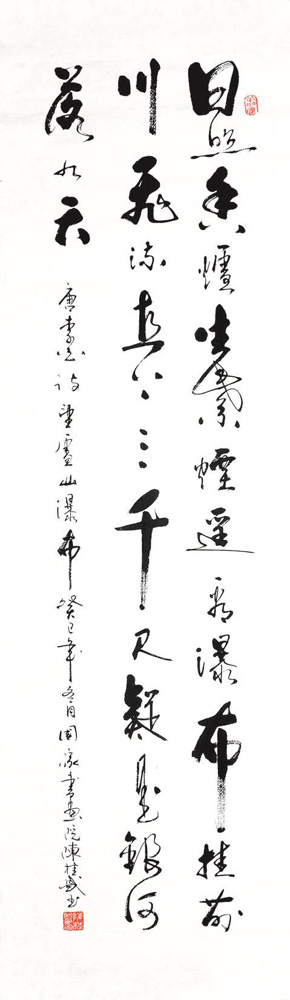 日照香爐生紫煙遥看瀑布挂前
川飛流直下三千尺疑是銀河
落九天
唐李白詩望廬山瀑布癸巳年冬月國家書畫院陳桂盛書